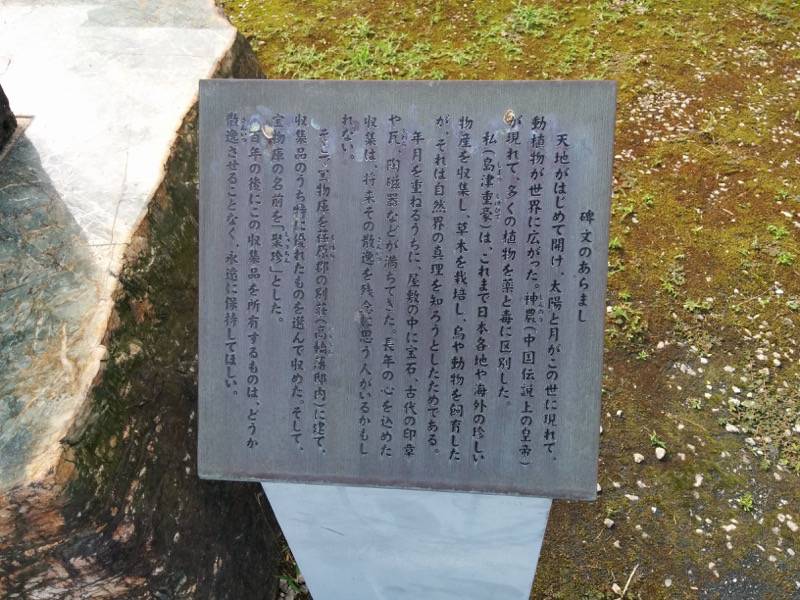 碑文のあらまし
天地がはじめて開け、太陽と月がこの世に現れて、
動植物が世界に広がった。神農(中国伝説上の皇帝)
が現れて、多くの植物を薬と毒に区別した。
私(島津重豪)は、これまで日本各地や海外の珍しい
物産を収集し、草木を栽培し、鳥や動物を飼育した
が、それは自然界の真理を知ろうとしたためである。
年月を重ねるうちに、屋敷の中に宝石、古代の印章
や瓦、陶磁器などが満ちてきた。長年の心を込めた
収集は、将来その散逸を残念に思う人がいるかもし
れない。
そこで宝物庫を荏原郡の別荘(高輪藩邸内)に建て、
収集品のうち特に優れたものを選んで収めた。そして、
宝物庫の名前を「聚珍」とした。
百年の後にこの収集品を所有するものは、どうか
散逸させることなく、永遠に保持してほしい。